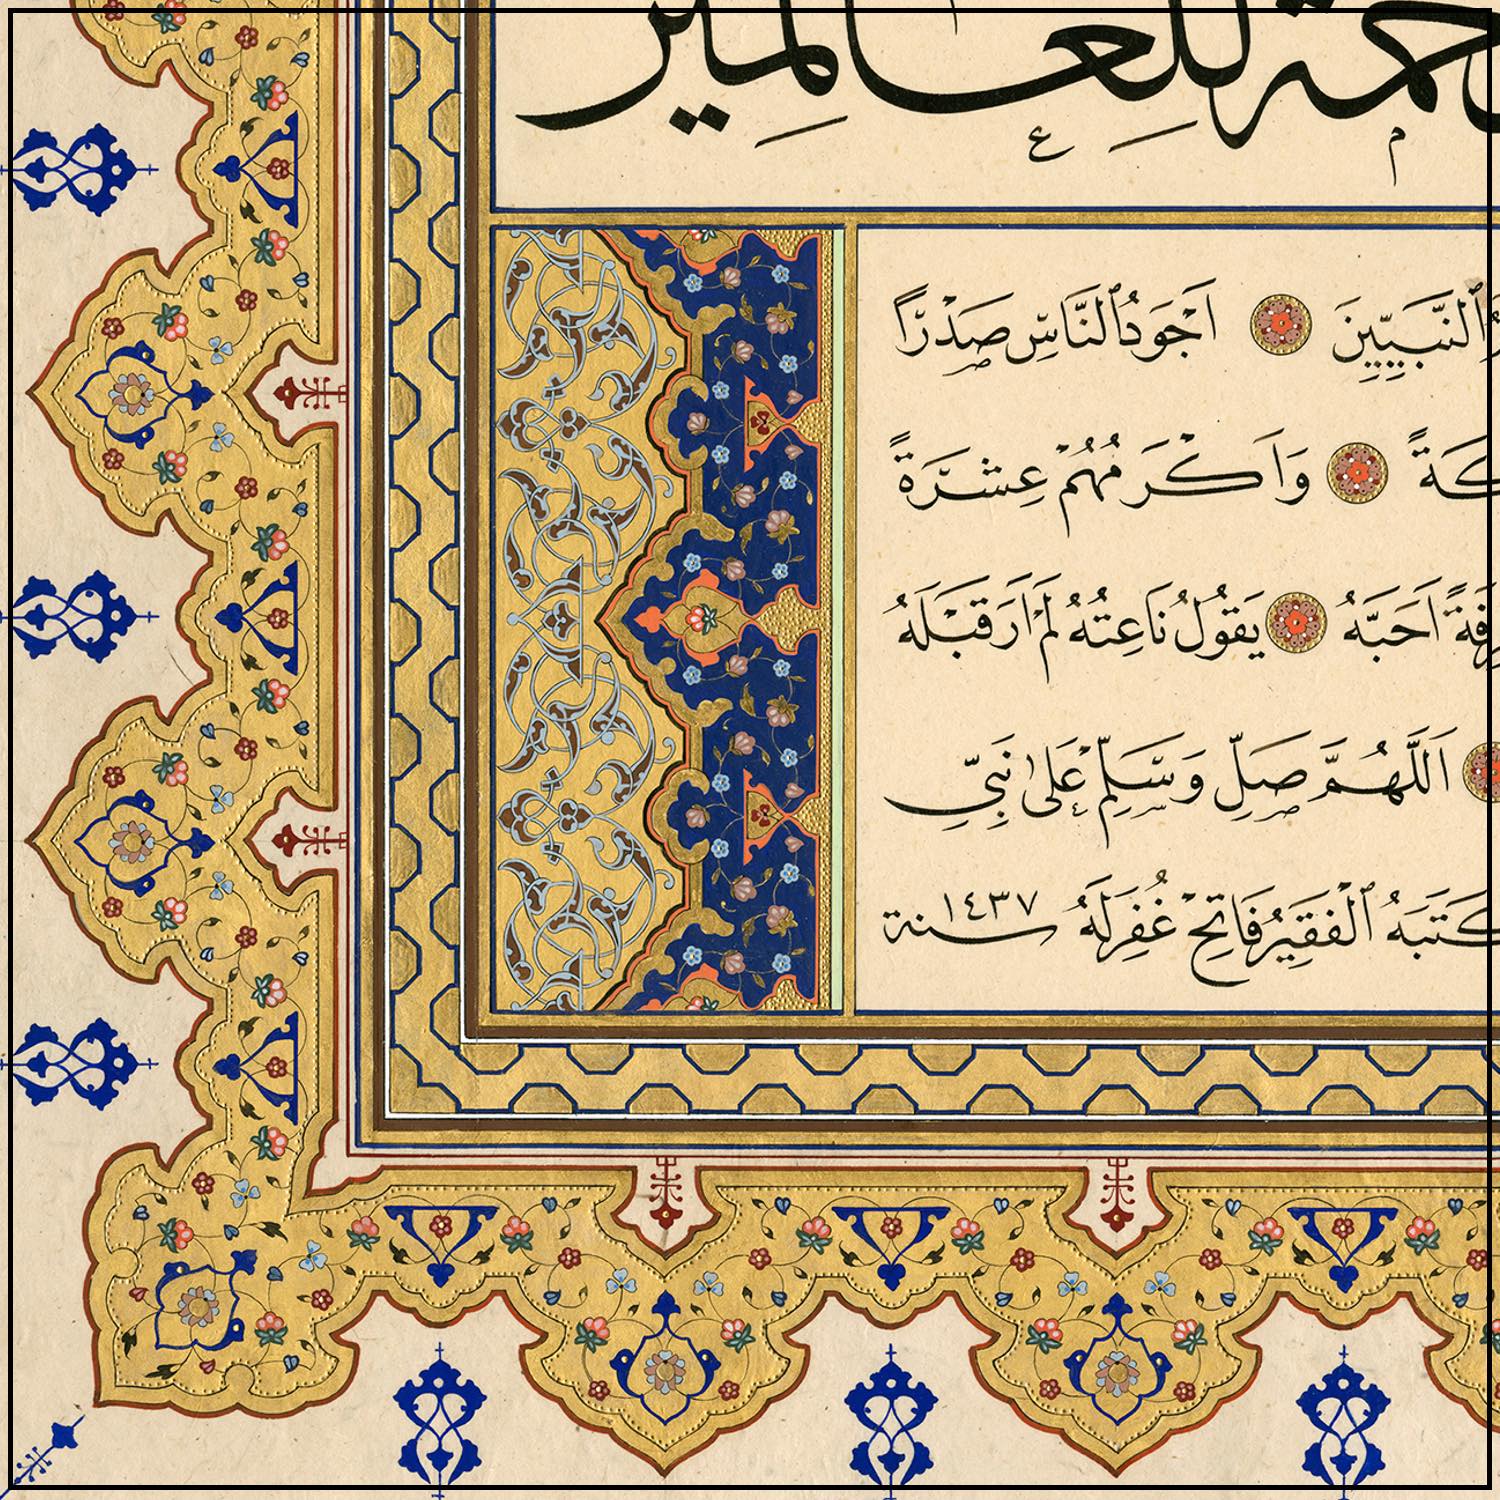 حمة للعالمين
النَّبِيِّينَ اَجْوَدُ النَّاسِ صَدْرًا
كَةً وَاَكْرَمُهُمْ عِشْرَةً
فَةً اَحَبَّهُ يَقُولُ نَاعِتُهُ لَمْ اَرَ قَبْلَهُ
اَللَّهُمَّ صَلِّ وَسَلِّمْ عَلَى نَبِيِّ
كَتَبَهُ الْفَقِيرُ فَاتِحْ غُفِرَ لَهُ سنة ١٤٣٧